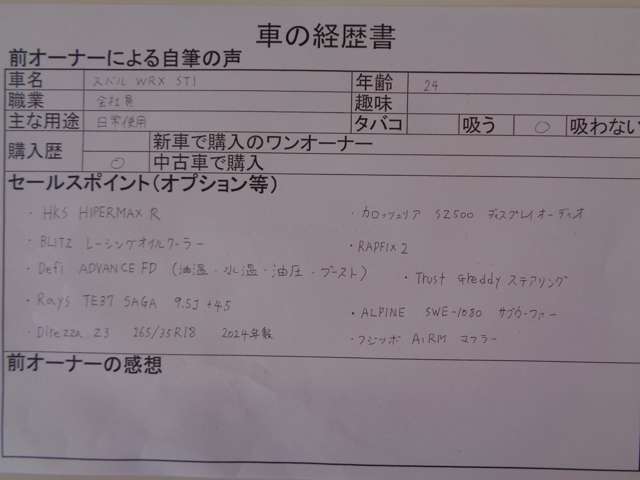 車の経歴書
前オーナーによる自筆の声
車名 スバル WRX STI 年齢 24
職業 会社員 趣味
主な用途 日常使用 タバコ 吸う ○ 吸わない
購入歴 新車で購入のワンオーナー
○ 中古車で購入
セールスポイント(オプション等)
・HKS HIPERMAX R ・カロッツェリア SZ500 ディスプレイオーディオ
・BLITZ レーシングオイルクーラー ・RAPFIX 2
・Defi ADVANCE FD (油温・水温・油圧・ブースト) ・Trust Greddy ステアリング
・Rays TE37 SAGA 9.5J +45 ・ALPINE SWE-1080 サブウーファー
・Direzza Z3 265/35R18 2024年製 ・フジツボ AiRM マフラー
前オーナーの感想